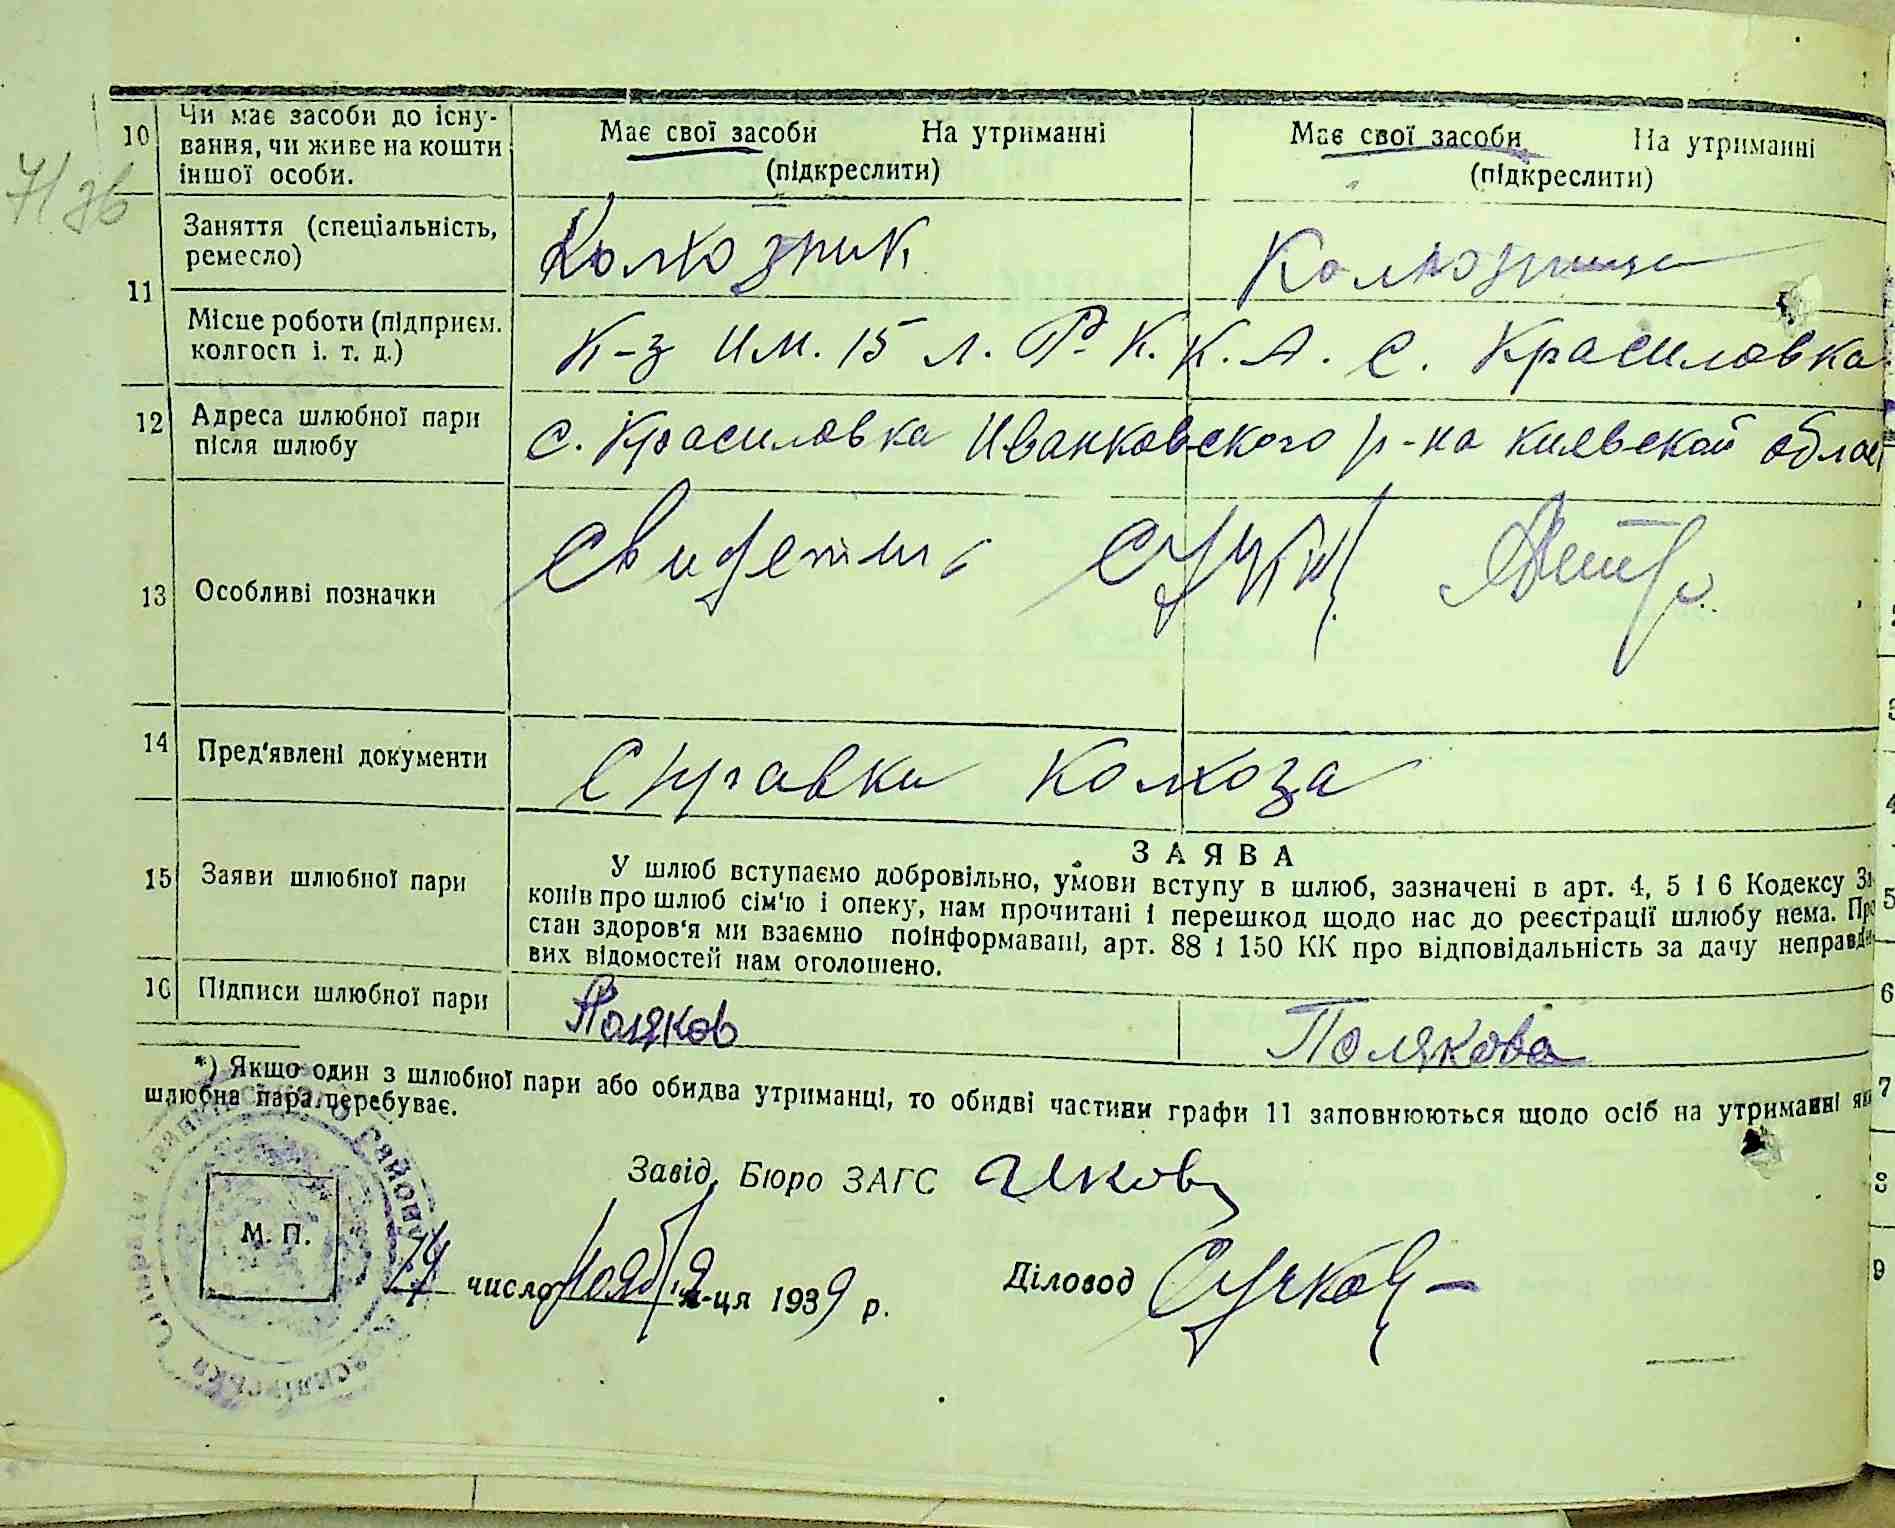 71 зв
10 Чи має засоби до існу-
вання, чи живе на кошти
іншої особи.
Має свої засоби На утриманні
(підкреслити)
Має свої засоби На утриманні
(підкреслити)
11 Заняття (спеціальність,
ремесло)
Колхозник
Колхозница
Місце роботи (підприєм.
колгосп і. т. д.)
К-з им. 15 л. Р. К. К. А. с. Красиловка
12 Адреса шлюбної пари
після шлюбу
с. Красиловка Иванковского р-на киевской облас
13 Особливі позначки
Свидетели
14 Пред'явлені документи
Справки Колхоза
15 Заяви шлюбної пари
ЗАЯВА
У шлюб вступаємо добровільно, умови вступу в шлюб, зазначені в арт. 4, 5 і 6 Кодексу За
конів про шлюб сім'ю і опеку, нам прочитані і перешкод щодо нас до реєстрації шлюбу нема. Про
стан здоров'я ми взаємно поінформавані, арт. 88 і 150 КК про відповідальність за дачу неправди
вих відомостей нам оголошено.
16 Підписи шлюбної пари
Поляков
Полякова
*) Якщо один з шлюбної пари або обидва утриманці, то обидві частини графи 11 заповнюються щодо осіб на утриманні як
шлюбна пара перебуває.
Завід. Бюро ЗАГС
М. П.
14 число ноября м-ця 1939 р.
Діловод
2
3
4
5
6
7
8
9